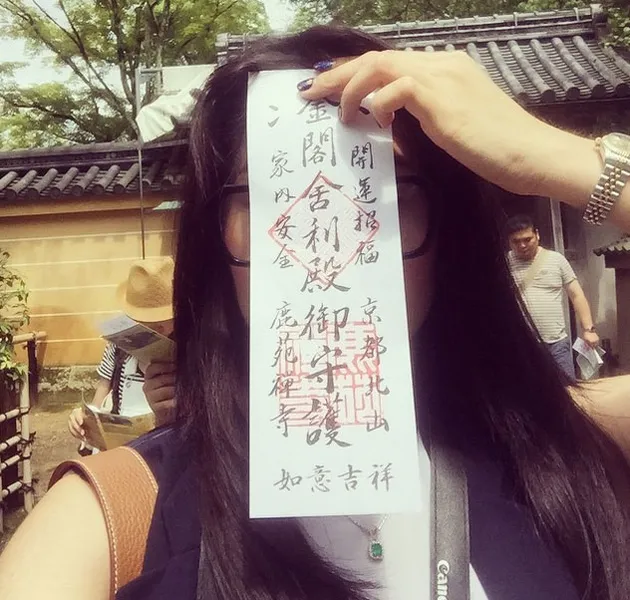 開運招福
京都北山
金閣舎利殿御守護
家内安全
鹿苑禅寺
如意吉祥
Canon